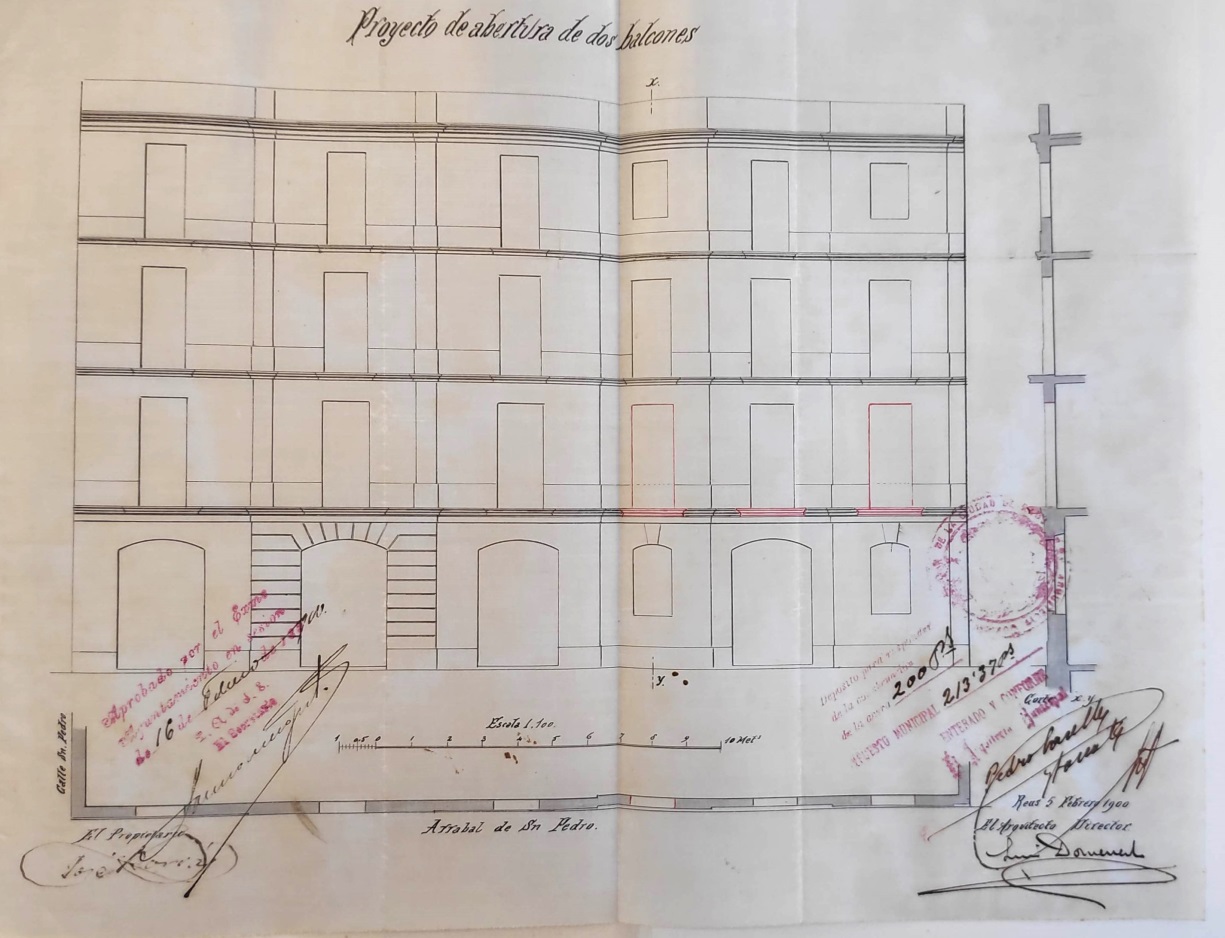 Proyecto de abertura de dos balcones
x.
y.
Aprobado por el Exmo
Ayuntamiento en sesion
de 16 de de 1900.
P. A. de S. E.
El Secretario
Depósito para responder
de la
de la acera 200 Pts
IMPUESTO MUNICIPAL 213'37 Ps
ENTERADO Y CONFORME
Corte x y
Escala 1:100.
1 0.5 0 1 2 3 4 5 6 7 8 9 10 Mets
Calle Sn. Pedro
Arrabal de Sn Pedro.
El Propietario
José
Pedro Caselles
y Tarrats
Reus 5 Febrero 1900
El Arquitecto Director
Luis Domenech